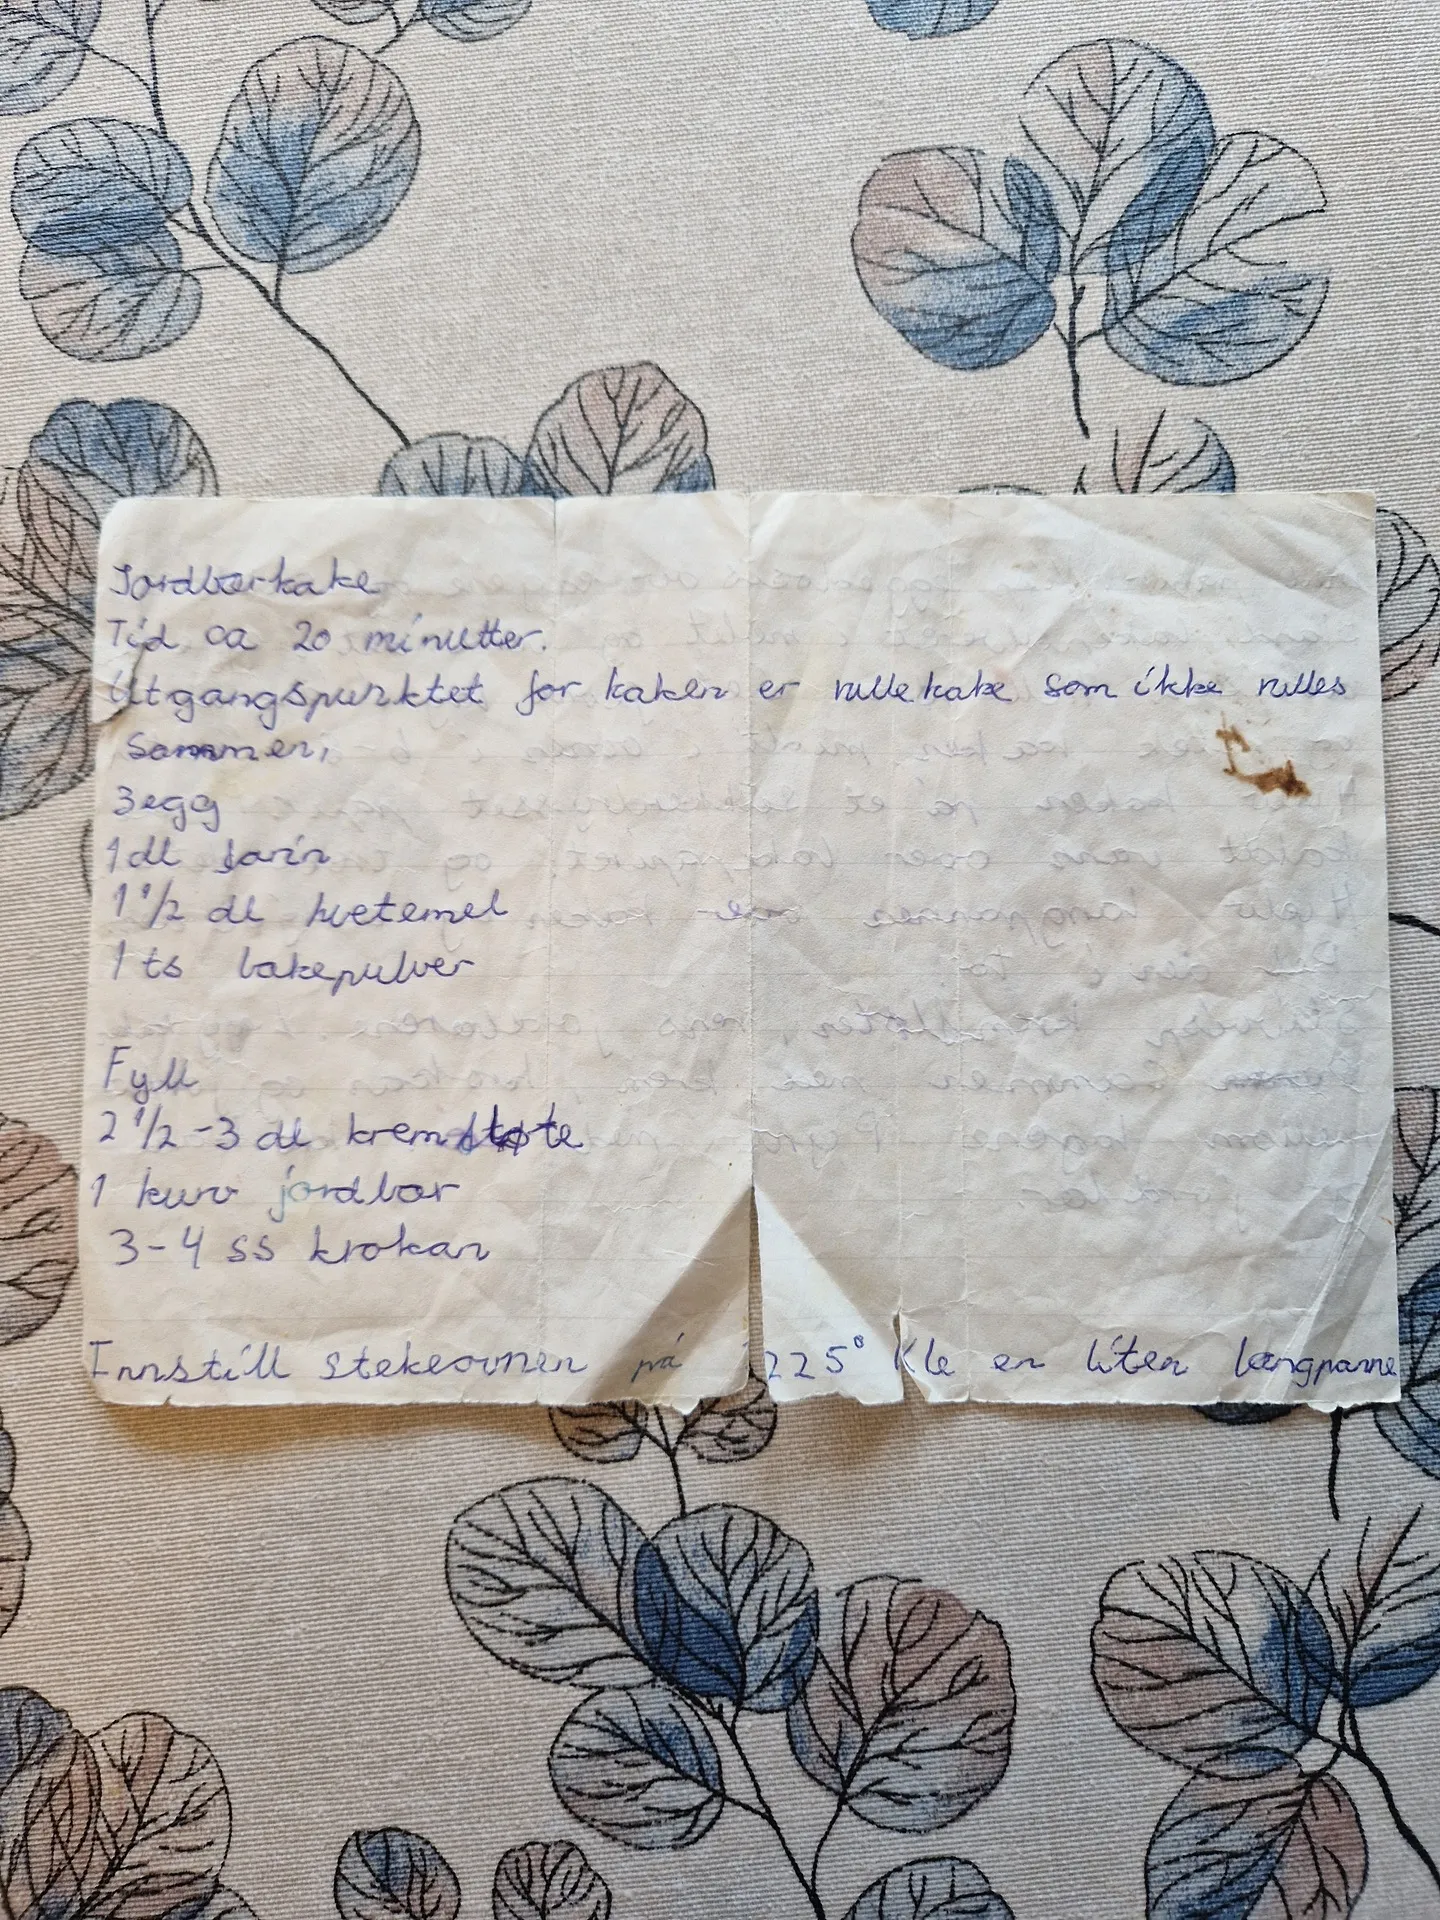 Jordbærkake
Tid ca 20 minutter.
Utgangspunktet for kaken er rullekake som ikke rulles
sammen,
3 egg
1 dl farin
1 1/2 dl hvetemel
1 ts bakepulver
Fyll
2 1/2 - 3 dl kremfløte
1 kurv jordbær
3-4 ss krokan
Innstill stekeovnen på 225° Kle en liten langpanne